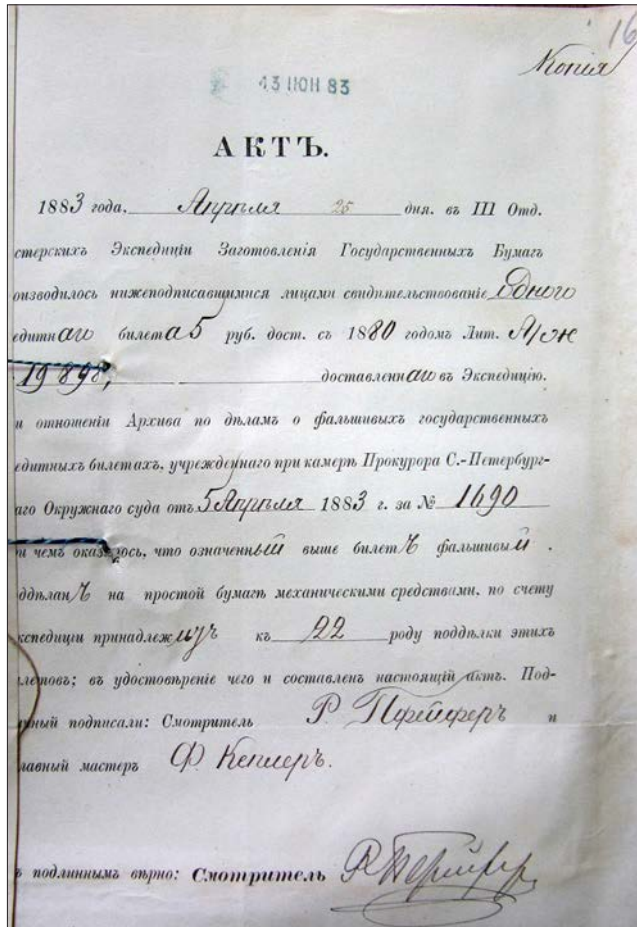 16
Копія
13 ІЮН 83
АКТЪ.
1883 года, Апрѣля 25 дня. въ III Отд.
стерскихъ Экспедиціи Заготовленія Государственныхъ Бумагъ
оизводилось нижеподписавшимися лицами свидѣтельствованіе Одного
едитнаго билета 5 руб. дост. съ 1880 годомъ Лит. А/ж
19898, доставленнаго въ Экспедицію.
и отношеніи Архива по дѣламъ о фальшивыхъ государственныхъ
едитныхъ билетахъ, учрежденнаго при камерѣ Прокурора С.-Петербург-
аго Окружнаго суда отъ 5 Апрѣля 1883 г. за № 1690
и чемъ оказалось, что означенный выше билетъ фальшивый.
оддѣланъ на простой бумагѣ механическими средствами, по счету
кспедиціи принадлежитъ къ 22 роду поддѣлки этихъ
летовъ; въ удостовѣреніе чего и составленъ настоящій актъ. Под-
нный подписали: Смотритель Р. Пфейферъ и
лавный мастеръ Ф. Кеплеръ.
ъ подлиннымъ вѣрно: Смотритель